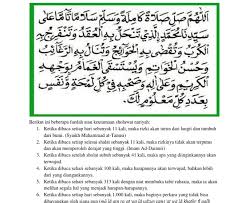 اَللّٰهُمَّ صَلِّ صَلَاةً كَامِلَةً وَسَلِّمْ سَلَامًا تَامًّا عَلَى
سَيِّدِنَا مُحَمَّدٍ الَّذِيْ تَنْحَلُّ بِهِ الْعُقَدُ وَتَنْفَرِجُ بِهِ
الْكُرَبُ وَتُقْضَى بِهِ الْحَوَائِجُ وَتُنَالُ بِهِ الرَّغَائِبُ
وَحُسْنُ الْخَوَاتِيْمِ وَيُسْتَسْقَى الْغَمَامُ بِوَجْهِهِ
الْكَرِيْمِ وَعَلَى اٰلِهِ وَصَحْبِهِ فِيْ كُلِّ لَمْحَةٍ وَنَفَسٍ
بِعَدَدِ كُلِّ مَعْلُوْمٍ لَكَ
Berikut ini beberapa faedah atau keutamaan sholawat nariyah:
1. Ketika dibaca setiap hari sebanyak 11 kali, maka rizki akan turun dari langit dan tumbuh
dari bumi. (Syaikh Muhammad at-Tunisi)
2. Ketika dibaca setiap selesai shalat sebanyak 11 kali, maka rizkinya tidak akan terputus
dan akan memperoleh derajat yang tinggi. (Imam Ad-Dainuri)
3. Ketika dibaca setelah shalat subuh sebanyak 41 kali, maka apa yang diinginkannya akan
terwujud.
4. Ketika dibaca sebanyak 100 kali, maka harapannya akan terwujud, bahkan lebih
dari yang diinginkannya.
5. Ketika dibaca sehari sebanyak 313 kali dengan niat membuka tabir rahasia, maka ia akan
melihat segala hal yang menjadi harapan-harapannya.
6. Ketika dibaca sehari sebanyak 1.000 kali, maka baginya perkara yang tidak bisa